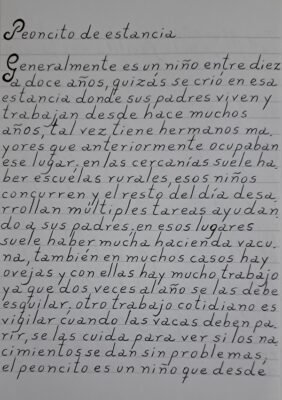 Peoncito de estancia
Generalmente es un niño entre diez
a doce años, quizás se crió en esa
estancia donde sus padres viven y
trabajan desde hace muchos
años, tal vez tiene hermanos ma.
yores que anteriormente ocupaban
ese lugar; en las cercanías suele ha.
ber escuelas rurales, esos niños
concurren y el resto del día desa.
rrollan múltiples tareas ayudan
do a sus padres; en esos lugares
suele haber mucha hacienda vacu.
na, también en muchos casos hay
ovejas y con ellas hay mucho trabajo
ya que dos veces al año se las debe
esquilar, otro trabajo cotidiano es
vigilar cuando las vacas deben pa.
rir, se las cuida para ver si los na
cimientos se dan sin problemas,
el peoncito es un niño que desde